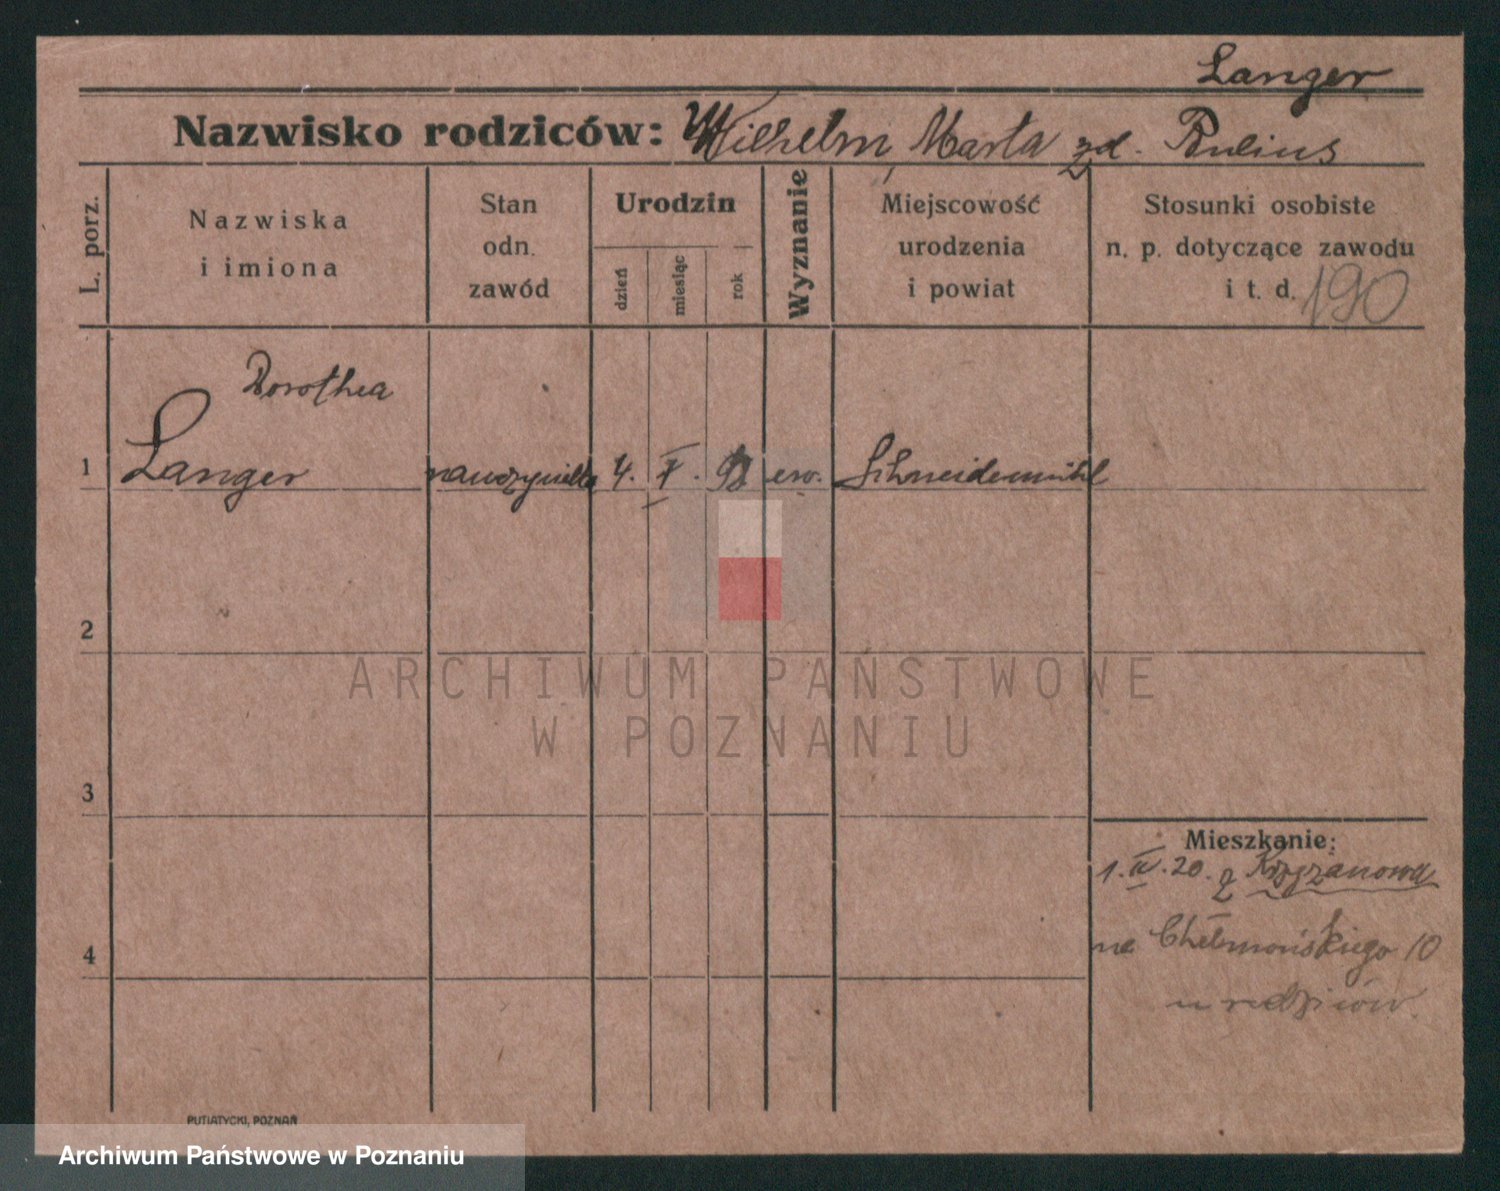 Langer
Nazwisko rodziców: Wilhelm, Marta zd. Paulius
L. porz.
Nazwiska
i imiona
Stan
odn.
zawód
Urodzin
dzień
miesiąc
rok
Wyznanie
Miejscowość
urodzenia
i powiat
Stosunki osobiste
n. p. dotyczące zawodu
i t. d. 190
Dorothea
1 Langer nauczycielka 4. ew. Schneidemühl
2
3
4
Mieszkanie:
1. IV. 20. z Krzyżanowa
na Chełmońskiego 10
u rodziców.
PUTIATYCKI, POZNAŃ
ARCHIWUM PAŃSTWOWE
W POZNANIU
Archiwum Państwowe w Poznaniu